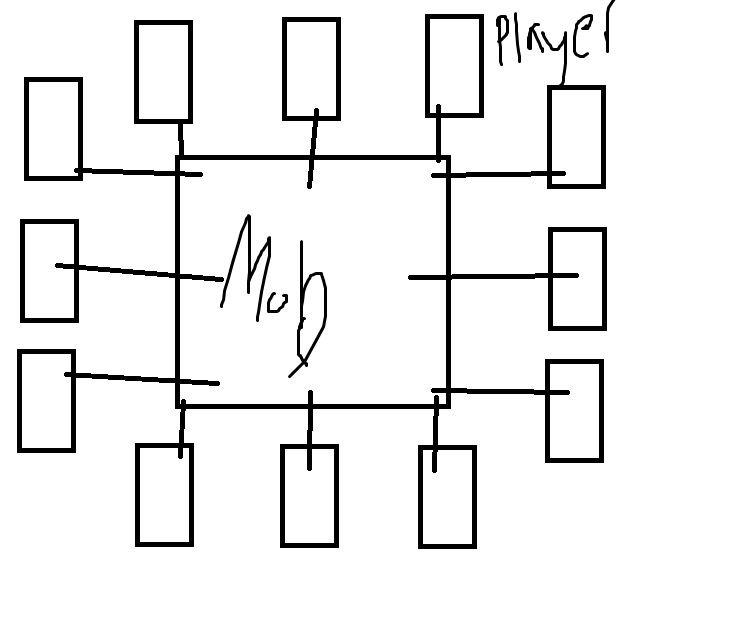 Player
Mob